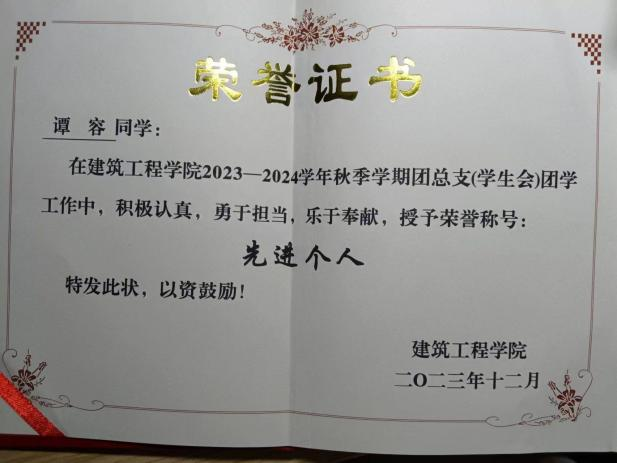 荣誉证书
谭 容 同学：
在建筑工程学院2023—2024学年秋季学期团总支(学生会)团学
工作中，积极认真，勇于担当，乐于奉献，授予荣誉称号：
先进个人
特发此状，以资鼓励！
建筑工程学院
二〇二三年十二月